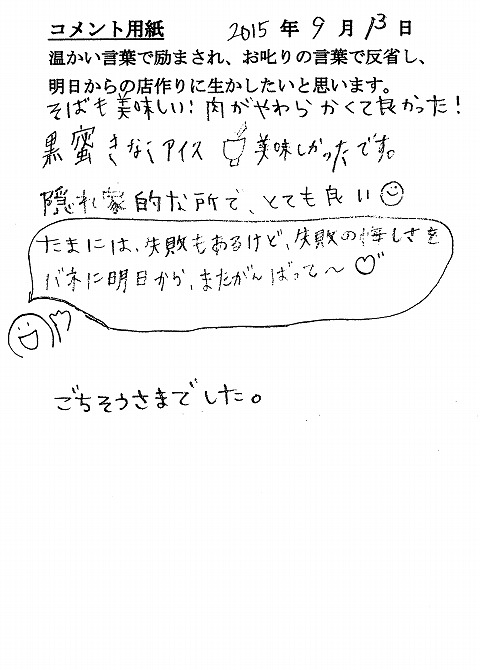 コメント用紙 2015 年 9 月 13 日
温かい言葉で励まされ、お叱りの言葉で反省し、
明日からの店作りに生かしたいと思います。
そばも美味しい!肉がやわらかくて良かった!
黒蜜きなこアイス 美味しかったです。
隠れ家的な所で、とても良い
たまには、失敗もあるけど、失敗の悔しさを
バネに明日から、またがんばって〜♡
ごちそうさまでした。